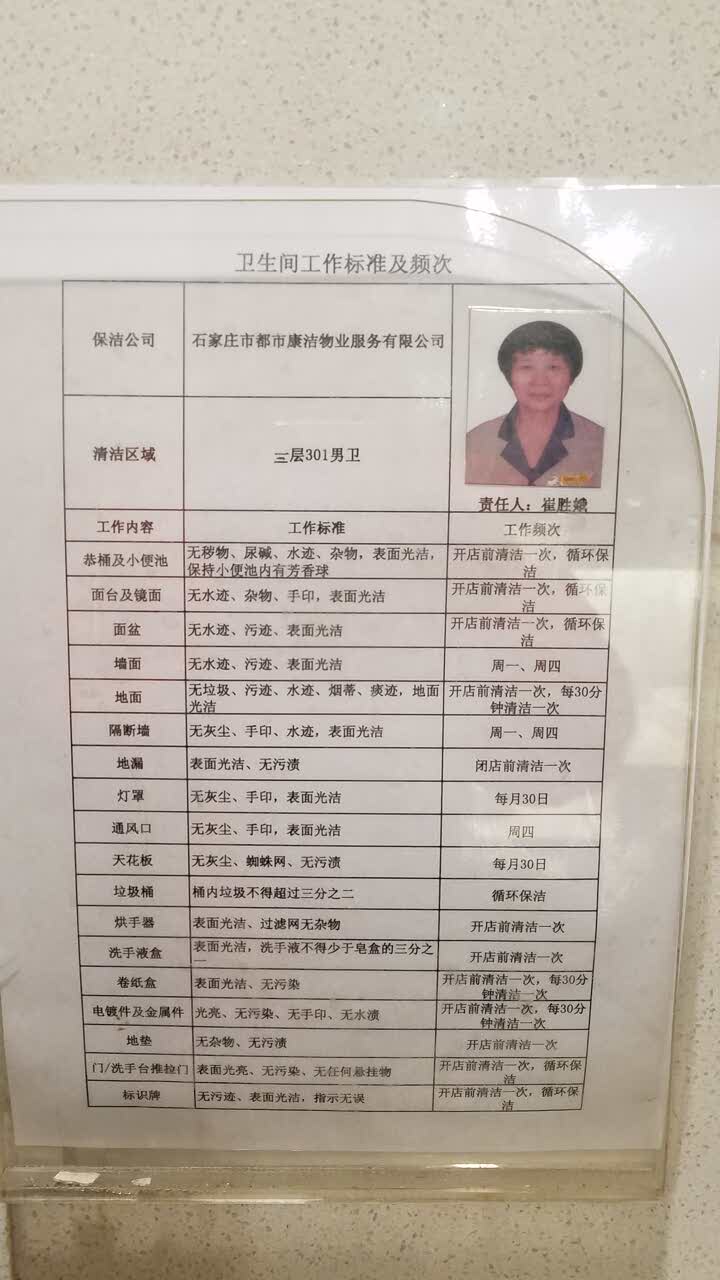 卫生间工作标准及频次
保洁公司 石家庄市都市康洁物业服务有限公司
清洁区域 三层301男卫
责任人：崔胜娥
工作内容 工作标准 工作频次
恭桶及小便池 无秽物、尿碱、水迹、杂物，表面光洁， 开店前清洁一次，循环保
保持小便池内有芳香球 洁
面台及镜面 无水迹、杂物、手印，表面光洁 开店前清洁一次，循环保
洁
面盆 无水迹、污迹、表面光洁 开店前清洁一次，循环保
洁
墙面 无水迹、污迹、表面光洁 周一、周四
地面 无垃圾、污迹、水迹、烟蒂、痰迹，地面 开店前清洁一次，每30分
光洁 钟清洁一次
隔断墙 无灰尘、手印、水迹，表面光洁 周一、周四
地漏 表面光洁、无污渍 闭店前清洁一次
灯罩 无灰尘、手印，表面光洁 每月30日
通风口 无灰尘、手印，表面光洁 周四
天花板 无灰尘、蜘蛛网、无污渍 每月30日
垃圾桶 桶内垃圾不得超过三分之二 循环保洁
烘手器 表面光洁、过滤网无杂物 开店前清洁一次
洗手液盒 表面光洁，洗手液不得少于皂盒的三分之 开店前清洁一次
一
卷纸盒 表面光洁、无污染 开店前清洁一次，每30分
钟清洁一次
电镀件及金属件 光亮、无污染、无手印、无水渍 开店前清洁一次，每30分
钟清洁一次
地垫 无杂物、无污渍 开店前清洁一次
门/洗手台推拉门 表面光亮、无污染、无任何悬挂物 开店前清洁一次，循环保
洁
标识牌 无污迹、表面光洁，指示无误 开店前清洁一次，循环保
洁